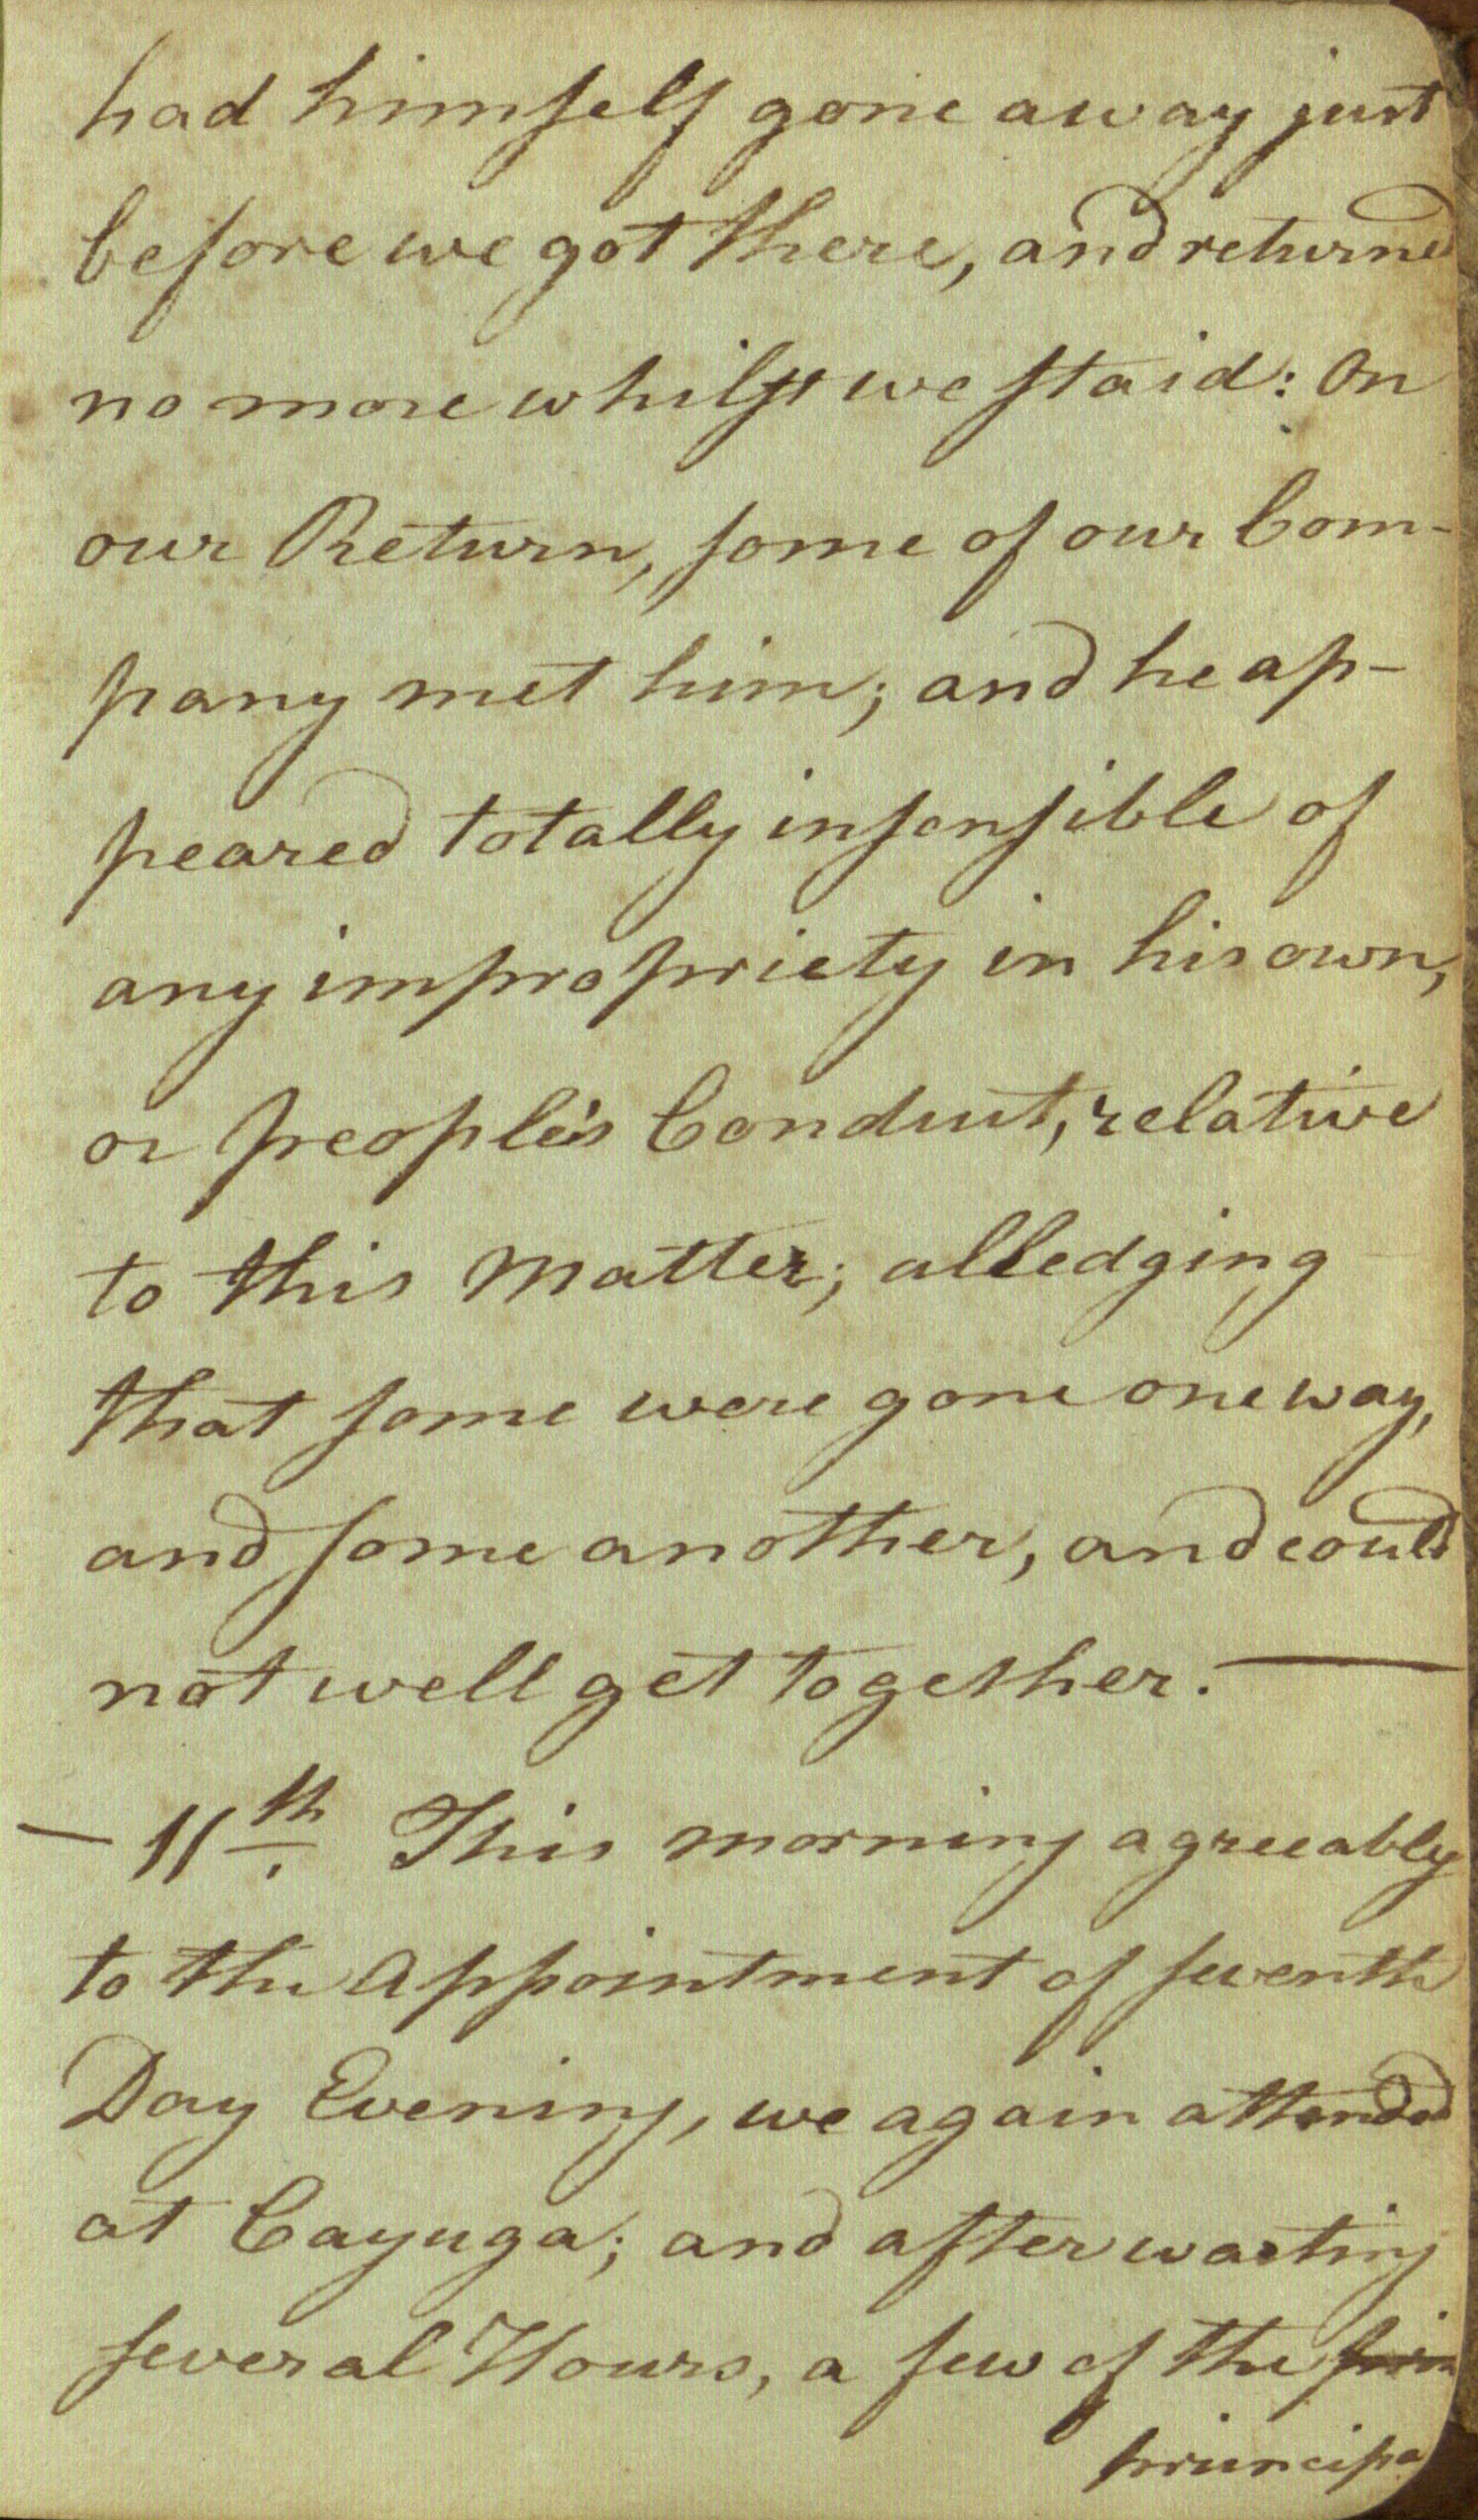 had himself gone away just
before we got there, and returned
no more whilst we staid: On
our Return, some of our Com-
pany met him; and he ap-
peared totally insensible of
any impropriety in his own,
or people's Conduct, relative
to this Matter; alledging
that some were gone one way,
and some another, and could
not well get together. —
— 11th. This morning agreeably
to the Appointment of seventh
Day Evening, we again attended
at Cayuga; and after waiting
several Hours, a few of the prin
principa